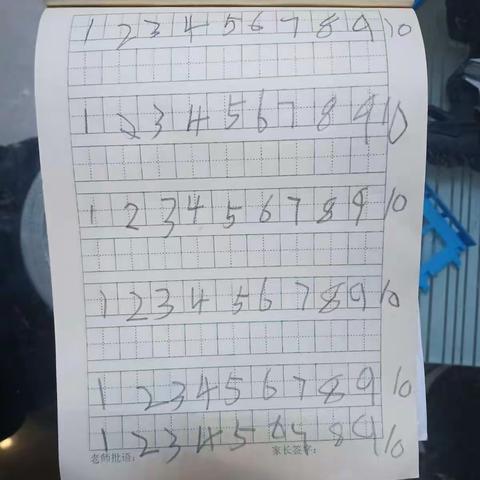 1 2 3 4 5 6 7 8 9 10
1 2 3 4 5 6 7 8 9 10
1 2 3 4 5 6 7 8 9 10
1 2 3 4 5 6 7 8 9 10
1 2 3 4 5 6 7 8 9 10
1 2 3 4 5 6 7 8 9 10
老师批语： 家长签字：